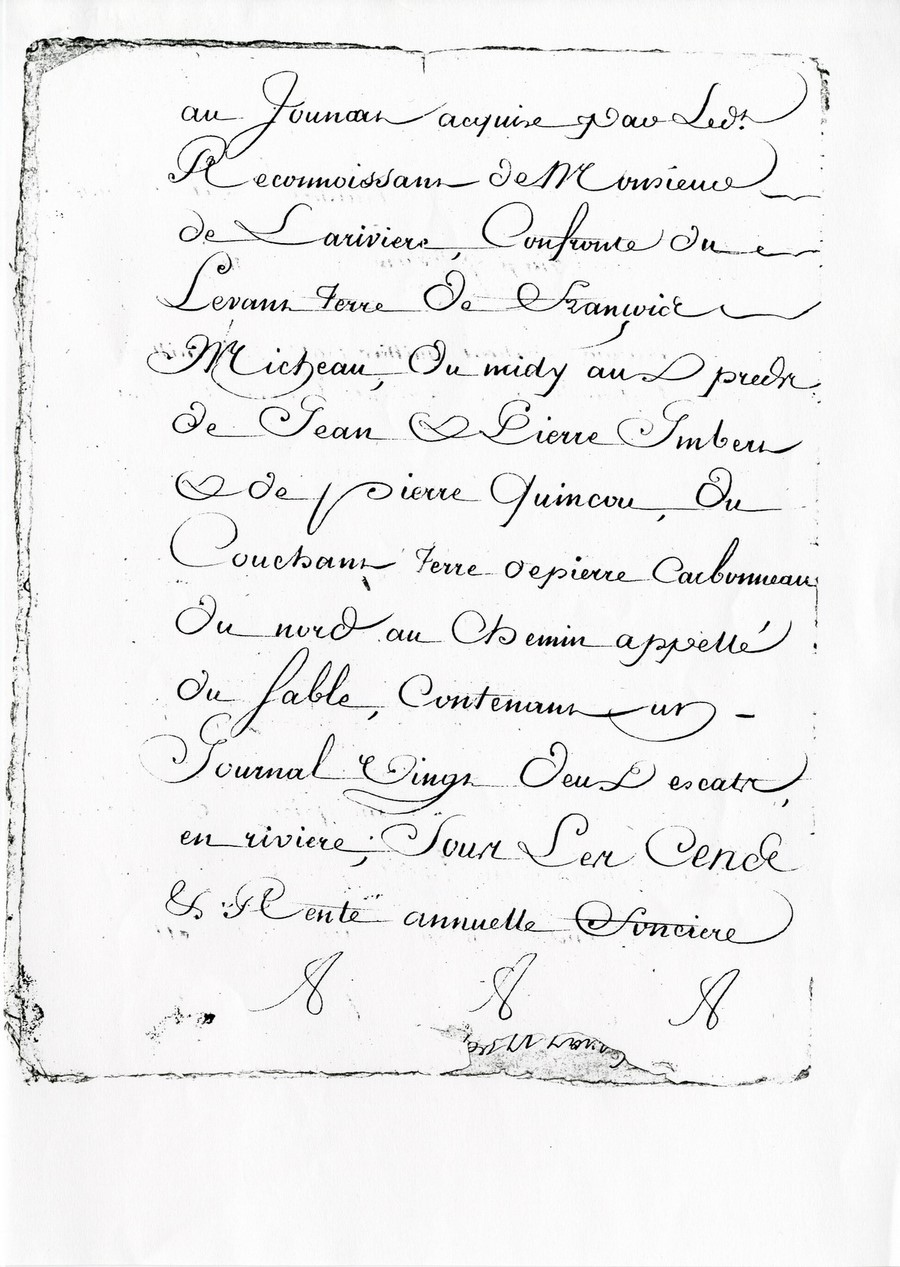 au Jouncan acquise par Ledt.
Reconnoissant de Monsieur
de Lariviere, Confronte du
Levant terre de François
Micheau, Du midy aux preds
de Jean & Pierre Imbert
& de pierre Quincou, Du
Couchant terre de pierre Carbonneau
Du nord au Chemin appellé
du sable, Contenant un -
Journal Vingt Deux escats,
en riviere; Sous Les Cende
& Rente annuelle Fonciere